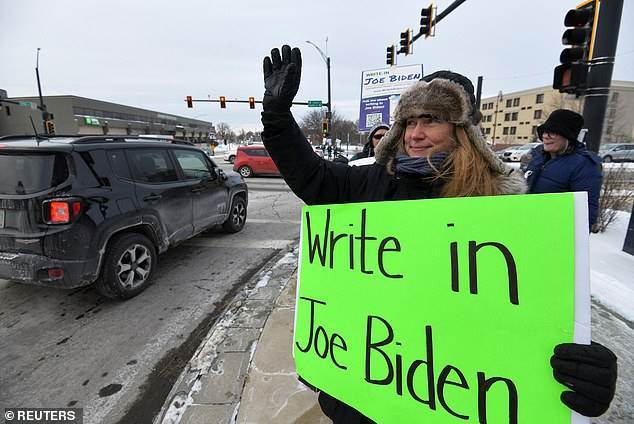 WRITE IN
JOE BIDEN
Write in
Joe Biden
© REUTERS